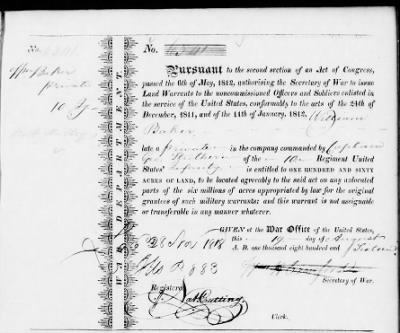 No.
Wm Baker
private
10
WAR DEPARTMENT.
Pursuant to the second section of an Act of Congress,
passed the 6th of May, 1812, authorising the Secretary of War to issue
Land Warrants to the noncommissioned Officers and Soldiers enlisted in
the service of the United States, conformably to the acts of the 24th of
December, 1811, and of the 11th of January, 1812. William
Baker
late a private in the company commanded by Captain
Geo of the 10 Regiment United
States' Infantry is entitled to ONE HUNDRED AND SIXTY
ACRES OF LAND, to be located agreeably to the said act on any unlocated
parts of the six millions of acres appropriated by law for the original
grantees of such military warrants; and this warrant is not assignable
or transferable in any manner whatever.
GIVEN at the War Office of the United States,
this 19 day of August
A. D. one thousand eight hundred and
28 Nov 1818
683
Secretary of War.
Registered
Nat Cutting
Clerk.